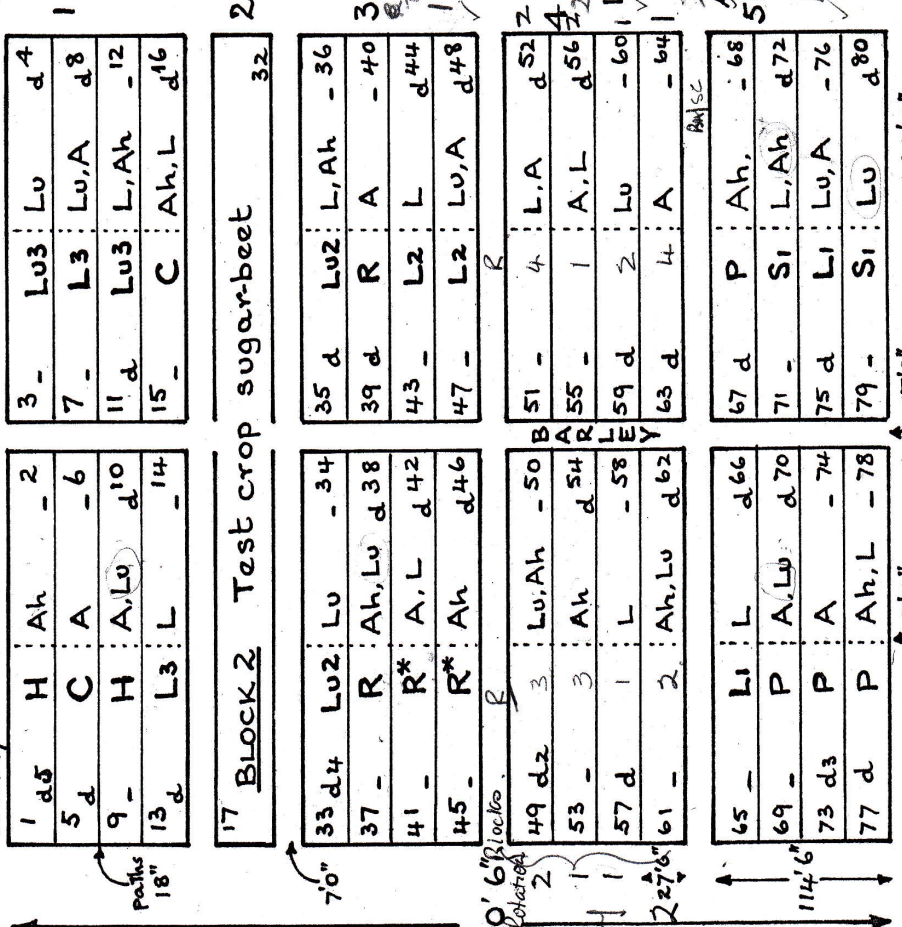 1 d5 H Ah - 2
5 d C A - 6
9 - H A, Lu d 10
13 d L3 L - 14
3 - Lu3 Lu d 4
7 - L3 Lu, A d 8
11 d Lu3 L, Ah - 12
15 - C Ah, L d 16
1
paths
18"
17 BLOCK 2 Test crop sugar-beet 32
2
7'0"
33 d4 Lu2 Lu - 34
37 - R Ah, Lu d 38
41 - R* A, L d 42
45 - R* Ah d 46
35 d Lu2 L, Ah - 36
39 d R A - 40
43 - L2 L d 44
47 - L2 Lu, A d 48
3
R R
Blocks
Rotation
2
1
1
2
0'6"
49 d2 3 Lu, Ah - 50
53 - 3 Ah d 54
57 d 1 L - 58
61 - 2 Ah, Lu d 62
BARLEY
51 - 4 L, A d 52
55 - 1 A, L d 56
59 d 2 Lu - 60
63 d 4 A - 64
2
4
1
1
27'6"
65 - L1 L d 66
69 - P A, Lu d 70
73 d3 P A - 74
77 d P Ah, L - 78
67 d P Ah, - 68
71 - S1 L, Ah d 72
75 d L1 Lu, A - 76
79 - S1 Lu d 80
5
114'6"